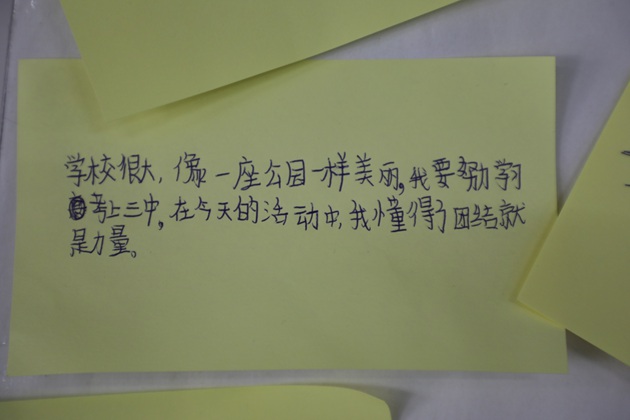 学校很大，像一座公园一样美丽，我要努力学习
考上三中，在今天的活动中，我懂得了团结就
是力量。